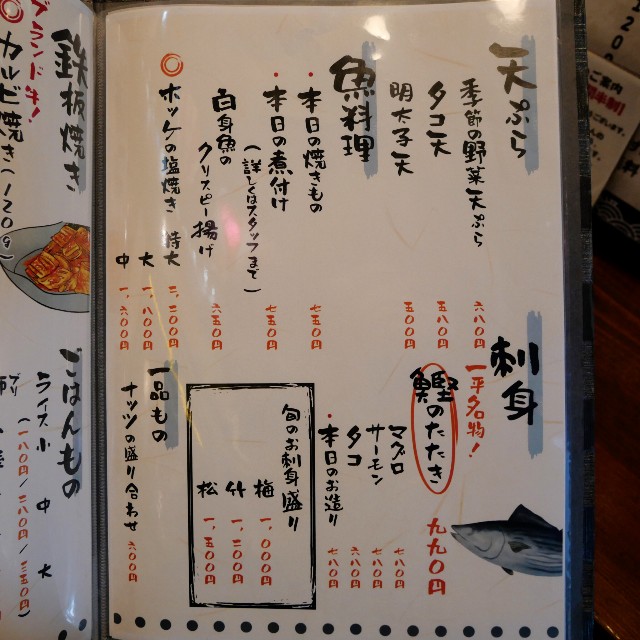 天ぷら
季節の野菜天ぷら 六八〇円
タコ天 五八〇円
明太子天 五〇〇円
魚料理
・本日の焼きもの 七五〇円
・本日の煮付け 七五〇円
(詳しくはスタッフまで)
白身魚の
クリスピー揚げ 六五〇円
◎ホッケの塩焼き 特大 二、二〇〇円
大 一、八〇〇円
中 一、六〇〇円
刺身
一平名物!
鰹のたたき 九九〇円
マグロ 七八〇円
サーモン 七八〇円
タコ 六八〇円
・本日のお造り 七八〇円
旬のお刺身盛り
梅 一、〇〇〇円
竹 一、二〇〇円
松 一、五〇〇円
一品もの
ナッツの盛り合わせ 六〇〇円
鉄板焼き
ブランド牛!
◎カルビ焼き(120g)
ごはんもの
ライス 小 中 大
(一八〇円/二八〇円/三五〇円)
ご案内